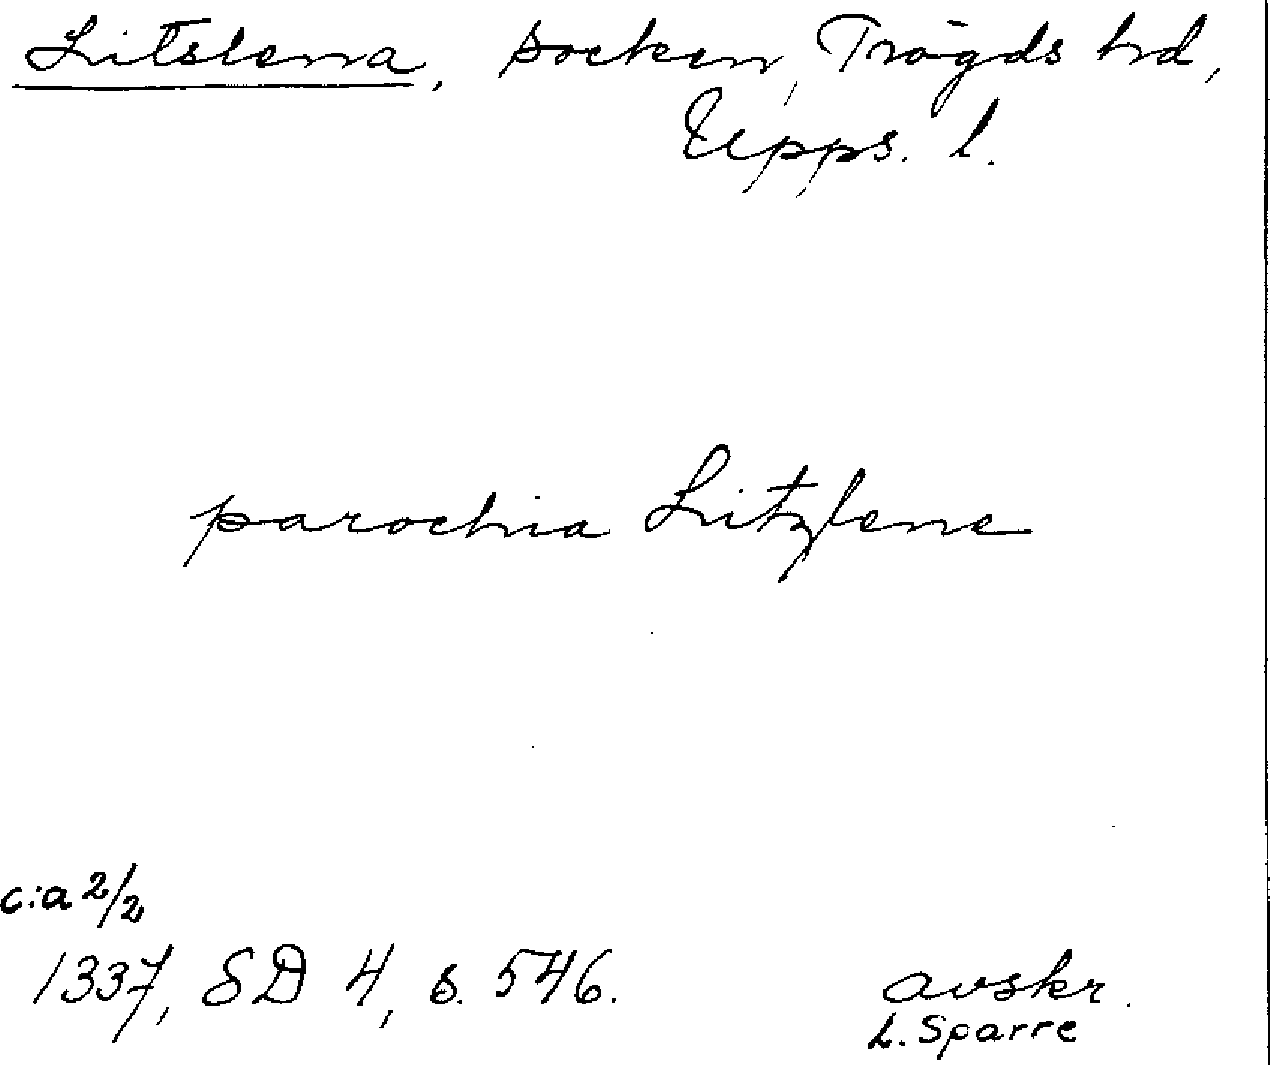 Litslena, socken, Trögds hd,
Upps. l.
parochia Litzlene
c:a 2/2
1337, SD 4, s. 546.
avskr.
L. Sparre